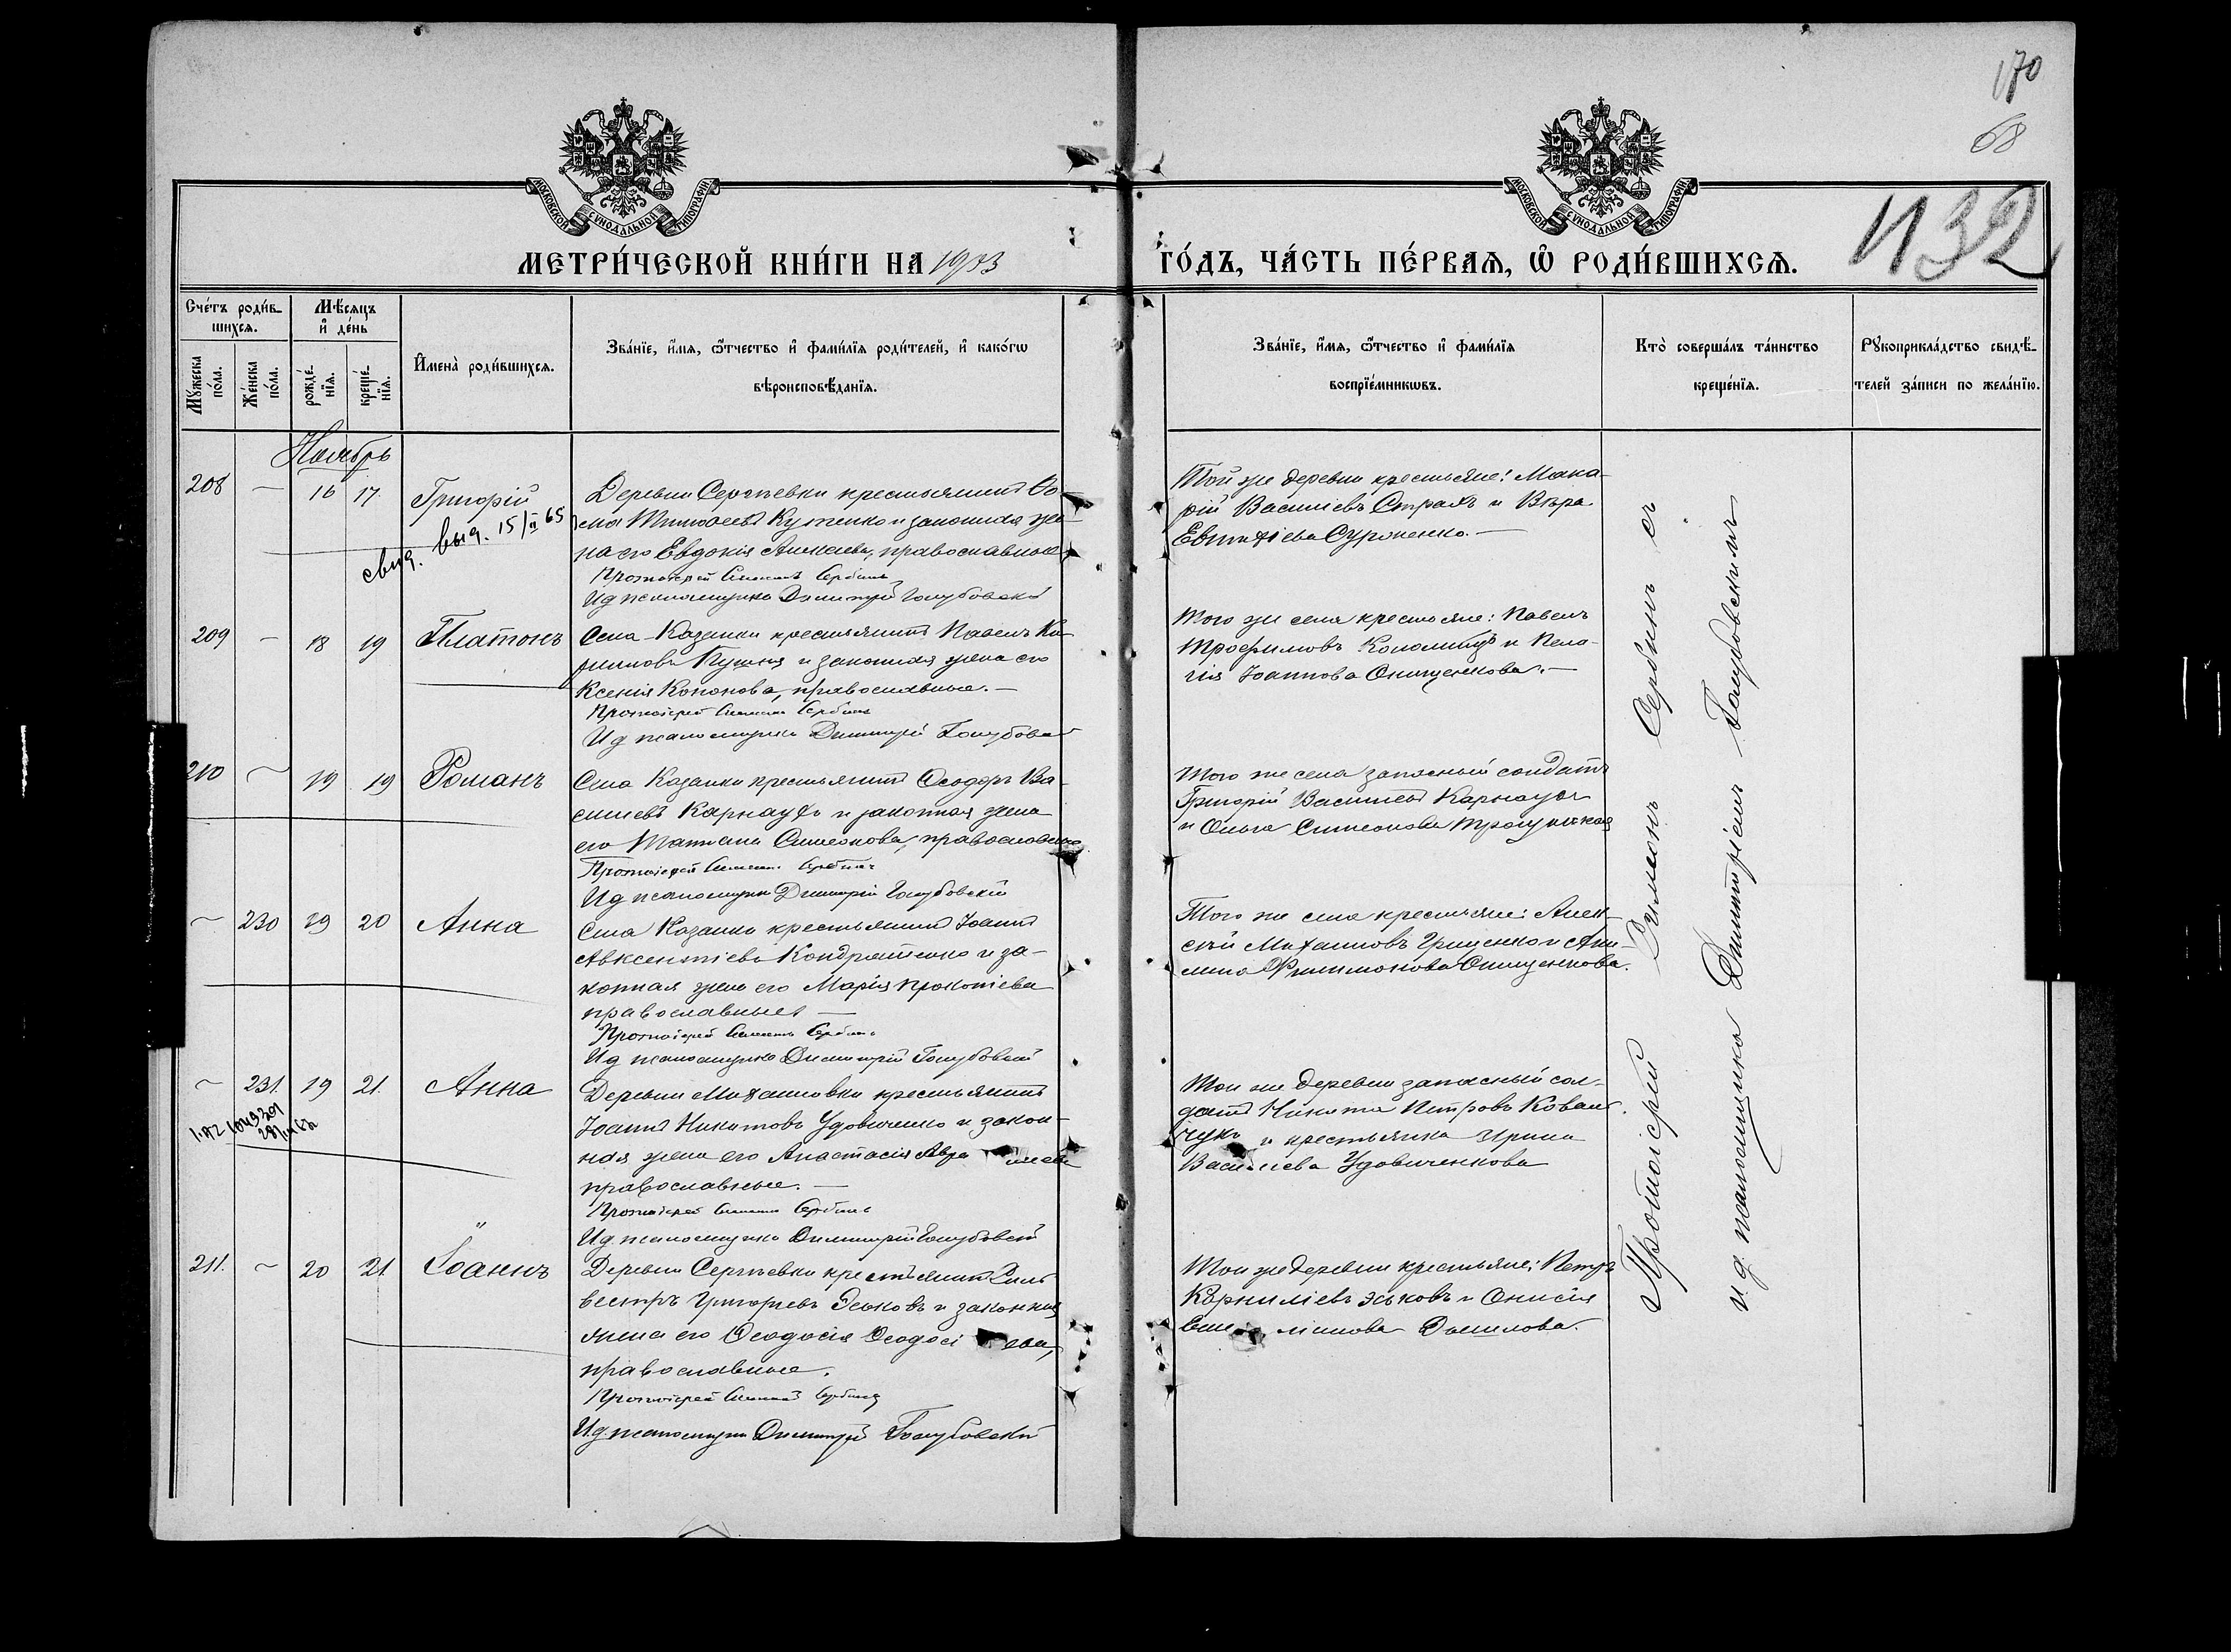 170
68
1132
МОСКОВСКОЙ СѴНОДАЛЬНОЙ ТИПОГРАФІИ
МОСКОВСКОЙ СѴНОДАЛЬНОЙ ТИПОГРАФІИ
МЕТРИ́ЧЕСКОЙ КНИ́ГИ НА 1903
ГО́ДЪ, ЧА́СТЬ ПЕ́РВАѦ, Ѡ РОДИ́ВШИХСѦ.
Сче́тъ роди́в-
шихсѧ.
Мѣ́сяцъ
и де́нь
Мꙋжеска по́ла.
Же́нска по́ла.
рожде́-
нїѧ.
креще́-
нїѧ.
Имена̀ роди́вшихсѧ.
Зва́нїе, и́мѧ, ѻ҆́тчество и фами́лїѧ роди́телей, и како́гѡ
вѣроисповѣ́данїѧ.
Зва́нїе, и́мѧ, ѻ҆́тчество и фами́лїѧ
воспрїе́мникѡвъ.
Кто̀ соверша́лъ та́инство
креще́нїѧ.
Рꙋкоприкла́дство свидѣ́-
телей за́писи по жела́нїю.
Ноябрь
208 — 16 17. Григорій
свид. выд. 15/II 65
Деревни Сергѣевки крестьянинъ Ѳо-
ма Тимоѳеевъ Куценко и законная же-
на его Евдокія Алексѣева, православные
Протоіерей Симеонъ Сербинъ
И д псаломщика Димитрій Голубовскій
Той же деревни крестьяне: Мака-
рій Василіевъ Страхъ и Вѣра
Евтихіева Суроненко. —
209 — 18 19 Платонъ
Села Казанки крестьянинъ Павелъ Ки-
рилловъ Пушня и законная жена его
Ксенія Кононова, православные. —
Протоіерей Симеонъ Сербинъ
И д псаломщика Димитрій Голубовскій
Того же села крестьяне: Павелъ
Трофимовъ Коломіецъ и Пела-
гія Іоаннова Онищенкова. —
210 — 19 19 Романъ
Села Казанки крестьянинъ Ѳеодоръ Ва-
силіевъ Карнаухъ и законная жена
его Татіана Симеонова, православные
Протоіерей Симеонъ Сербинъ
И д псаломщика Димитрій Голубовскій
Того же села запасный солдатъ
Григорій Василіевъ Карнаухъ
и Ольга Симеонова
— 230 19 20 Анна
Села Казанки крестьянинъ Іоаннъ
Авксентіевъ Кондратенко и за-
конная жена его Марія Прокопіева
православные —
Протоіерей Симеонъ Сербинъ
И д псаломщика Димитрій Голубовскій
Того же села крестьяне: Алек-
сѣй Михаиловъ Грищенко и Аки-
лина Филимонова Онищенкова.
— 231. 19 21. Анна
Деревни Михаиловки крестьянинъ
Іоаннъ Никитовъ Удовиченко и закон-
ная жена его Анастасія
православные. —
Протоіерей Симеонъ Сербинъ
И д. псаломщика Димитрій Голубовскій
Той же деревни запасный сол-
датъ Никита Петровъ Коваль-
чукъ и крестьянка Ирина
Василіева Удовиченкова
211. — 20 21 Іоаннъ
Деревни Сергѣевки крестьянинъ Силь-
вестръ Григорьевъ Эськовъ и законная
жена его Ѳеодосія Ѳеодосіева,
православные.
Протоіерей Симеонъ Сербинъ
И.д. псаломщика Димитрій Голубовскій
Той же деревни крестьяне: Петръ
Корниліевъ Эськовъ и Онисія
Данилова.
Протоіерей Симеонъ Сербинъ съ
и д. псаломщика Димитріемъ Голубовскимъ